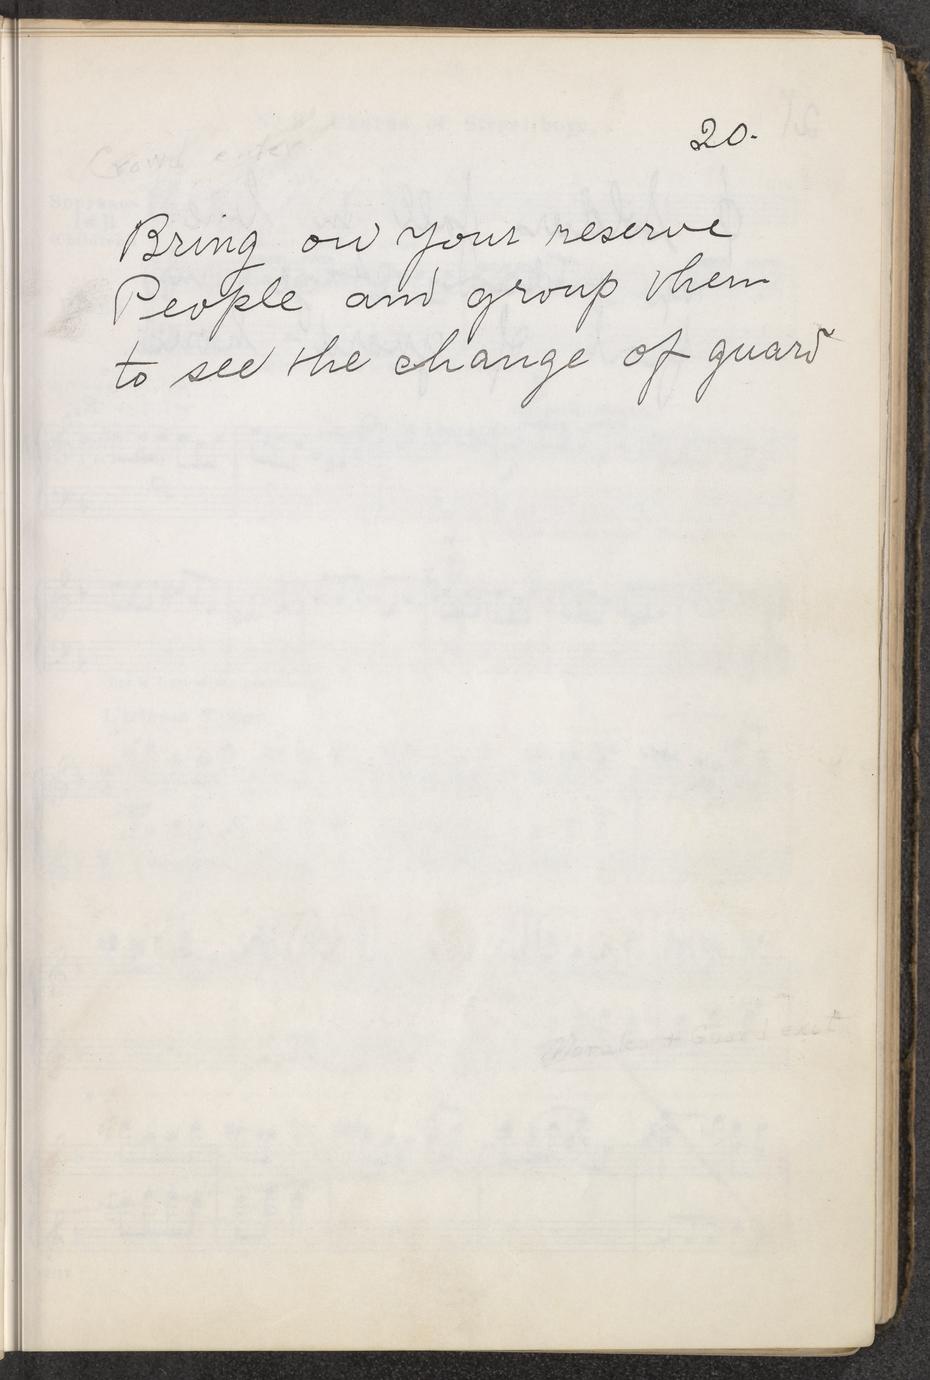 20.
Crowd enter
Bring on your reserve
People and group them
to see the change of guard
Morales + Guard exit